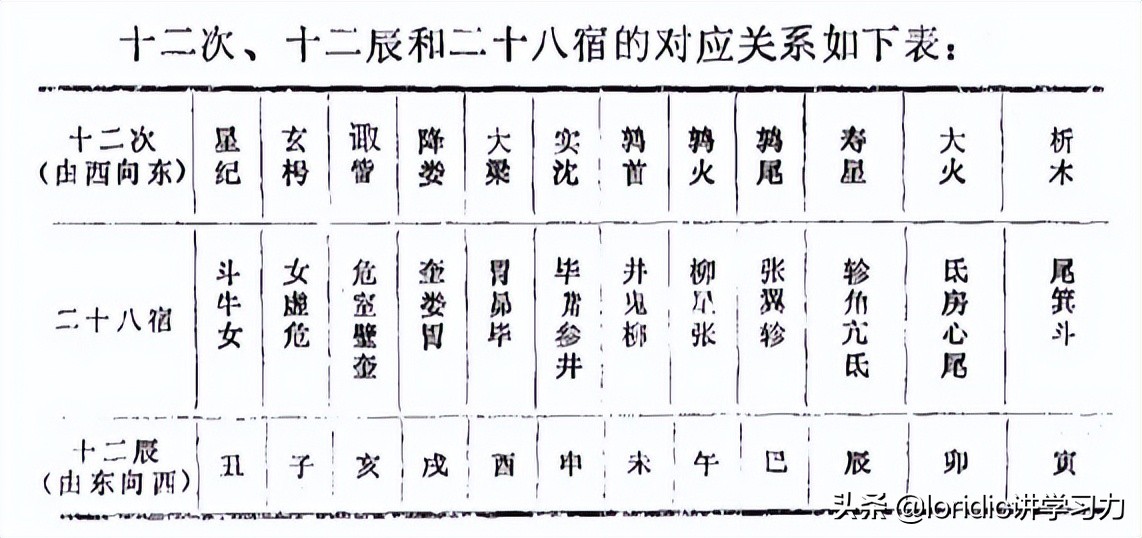 十二次、十二辰和二十八宿的对应关系如下表：
十二次 星 玄 诹 降 大 实 鹑 鹑 鹑 寿 大 析
(由西向东) 纪 枵 訾 娄 梁 沈 首 火 尾 星 火 木
斗 女 危 奎 胃 毕 井 柳 张 轸 氐 尾
牛 虚 室 娄 昴 觜 鬼 星 翼 角 房 箕
二十八宿 女 危 壁 胃 毕 参 柳 张 轸 亢 心 斗
奎 井 氐 尾
十二辰 丑 子 亥 戌 酉 申 未 午 巳 辰 卯 寅
(由东向西)
头条 @loridic讲学习力